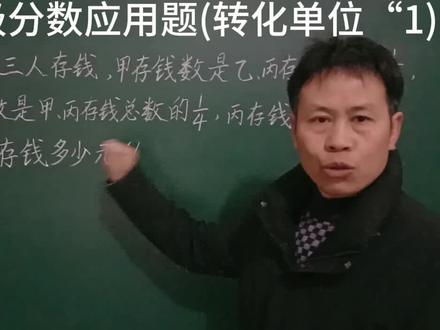 分数应用题(转化单位“1)
三人存钱,甲存钱数是乙、丙存
数是甲、丙存钱总数的1/4,丙存钱
存钱多少元